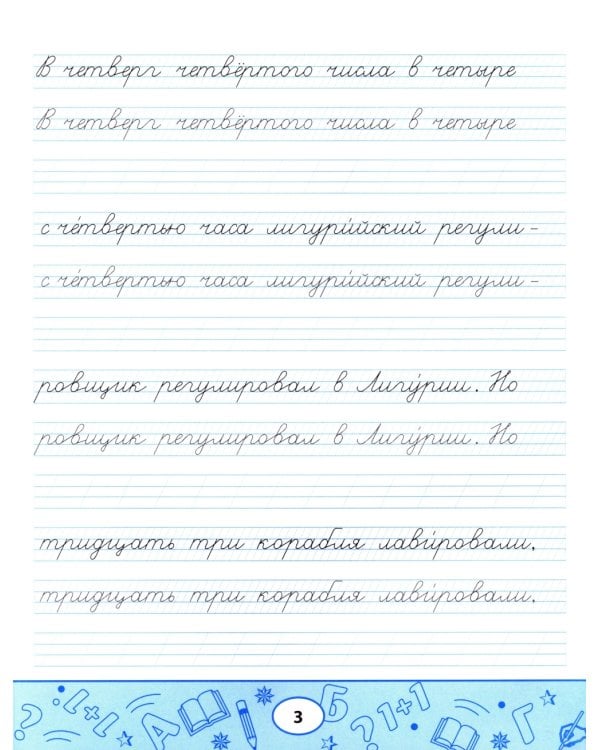 В четверг четвёртого числа в четыре
В четверг четвёртого числа в четыре
с че́твертью часа лигури́йский регули-
с че́твертью часа лигури́йский регули-
ровщик регулировал в Лигу́рии. Но
ровщик регулировал в Лигу́рии. Но
тридцать три корабля лави́ровали.
тридцать три корабля лави́ровали.
? 1+1 А Б ? 1+1 Г
3